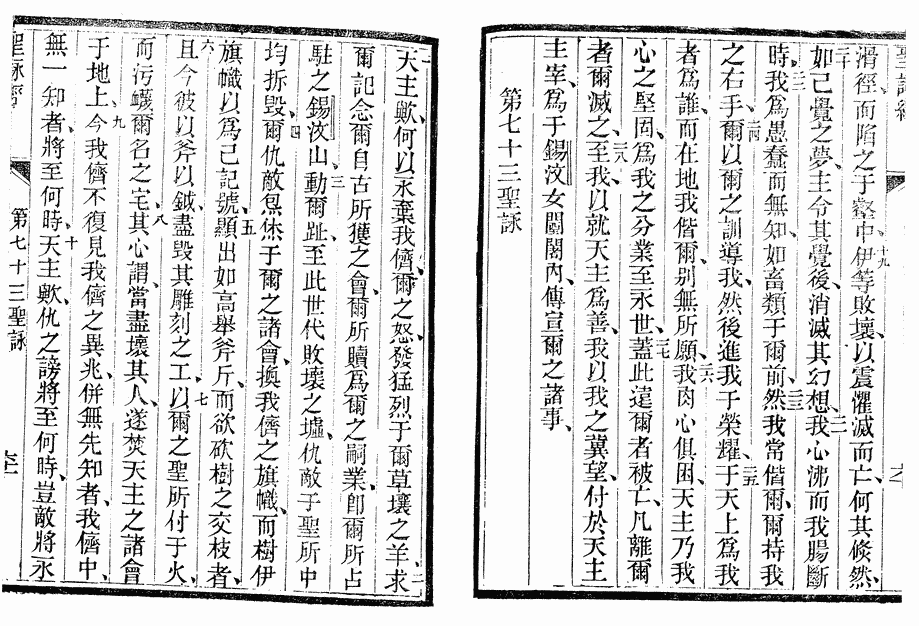 聖詠經
滑徑而陷之于壑中伊等敗壞以震懼滅而亡、十九何其倐然、
二十如己覺之夢、主令其覺後、消滅其幻想、二一我心沸而我腸斷
時、二二我為愚蠢而無知、如畜類于爾前、二三然我常偕爾、爾持我
之右手、二四爾以爾之訓導我、然後進我于榮耀、二五于天上為我
者為誰、而在地我偕爾、別無所願、二六我肉心俱困、天主乃我
心之堅固、為我之分業至永世、二七蓋此違爾者被亡、凡離爾
者爾滅之、二八至我、以就天主為善、我以我之冀望、付於天主
主宰、為于錫汶女闥閣內、傳宣爾之諸事、
第七十三聖詠
一天主歟、何以永棄我儕、爾之怒、發猛烈于爾草壤之羊、二求
爾記念爾自古所獲之會、爾所贖為爾之嗣業、卽爾所占
駐之錫汶山、三動爾趾、至此世代敗壞之墟、仇敵于聖所中
均拆毀、四爾仇敵炰烋于爾之諸會、換我儕之旗幟、而樹伊
旗幟以為己記號、五顯出如高舉斧斤、而欲砍樹之交枝者、
六且今彼以斧以鉞、盡毀其雕刻之工、七以爾之聖所付于火、
而污衊爾名之宅、八其心謂、當盡壞其人、遂焚天主之諸會
于地上、九今我儕不復見我儕之異兆、併無先知者、我儕中、
無一知者、將至何時、十天主歟、仇之謗將至何時、豈敵將永
聖詠經
第七十三聖詠